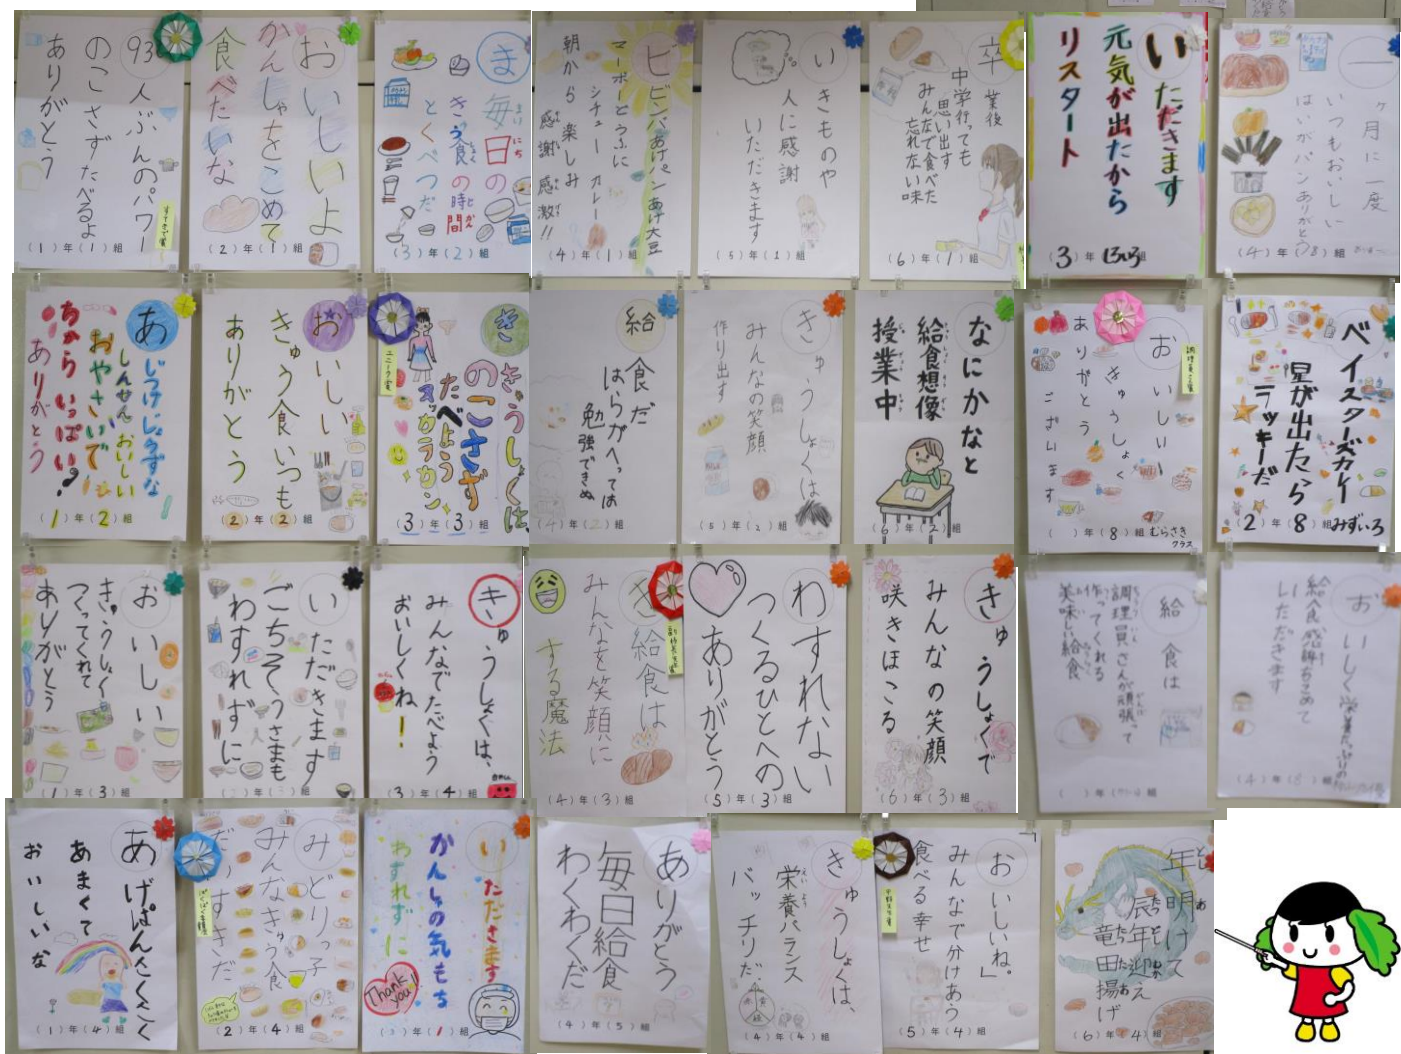 93人ぶんのパワー
のこさずたべるよ
ありがとう
(1)年(1)組
おいしいよ
かんしゃをこめて
食べたいな
(2)年(1)組
ま毎日の
きゅう食の時間
とくべつだ
(3)年(2)組
ビビンバあげパンあげ大豆
マーボーどうふに
シチュー カレー
朝から楽しみ
感謝感激!!
(4)年(1)組
いきものや
人に感謝
いただきます
(5)年(1)組
卒業後
中学行っても
思い出す
みんなで食べた
忘れない味
(6)年(1)組
いただきます
元気が出たから
リスタート
3年
一ヶ月に一度
いつもおいしい
はいがパンありがとう
(4)年(8)組
あじつけじょうずな
しんせんおいしい
おやさいで
ちからいっぱい
ありがとう
(1)年(2)組
おいしい
きゅう食いつも
ありがとう
(2)年(2)組
ユニーク賞
きゅうしょくは
のこさず
たべよう
スッカラカン
(3)年(3)組
給食だ
はらがへっては
勉強できぬ
(4)年(2)組
きゅうしょくは
みんなの笑顔
作り出す
(5)年(2)組
なにかなと
給食想像
授業中
(6)年(2)組
おいしい
きゅうしょく
ありがとう
ございます
( )年(8)組 むらさき
クラス
ベイスターズカレー
星が出たら
ラッキーだ
2年8組 みずいろ
おいしい
きゅうしょく
つくってくれて
ありがとう
(1)年(3)組
いただきます
ごちそうさまも
わすれずに
きゅうしょくは、
みんなでたべよう
おいしくね!
(3)年(4)組
給食は
みんなを笑顔に
する魔法
(4)年(3)組
わすれない
つくるひとへの
ありがとう
(5)年(3)組
きゅうしょくで
みんなの笑顔
咲きほこる
(6)年(3)組
給食は
調理員さんが頑張って
作ってくれる
美味しい給食
おいしく栄養たっぷりの
給食感謝をこめて
いただきます
(4)年(8)組
あげぱんんくんくこく
あまくて
おいしいな
(1)年(4)組
みどりっ子
みんなきゅう食
だいすきだ
(2)年(4)組
いただきます
かんしゃの気もち
わすれずに
Thank you!
(3)年(1)組
ありがとう
毎日給食
わくわくだ
(4)年(5)組
きゅうしょくは、
栄養バランス
バッチリだ
(4)年(4)組
おいしいね。」
みんなで分けあう
食べる幸せ
(5)年(4)組
年明けて
辰年迎え
竜田揚げ
(6)年(4)組